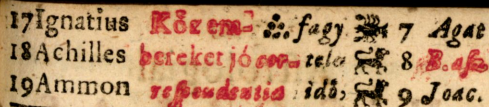 17 Ignatius Kőz em- fagy 7 Agat
18 Achilles bereket jó cor- tele 8 B. asz
19 Ammon respendentia idő, 9 Joac.